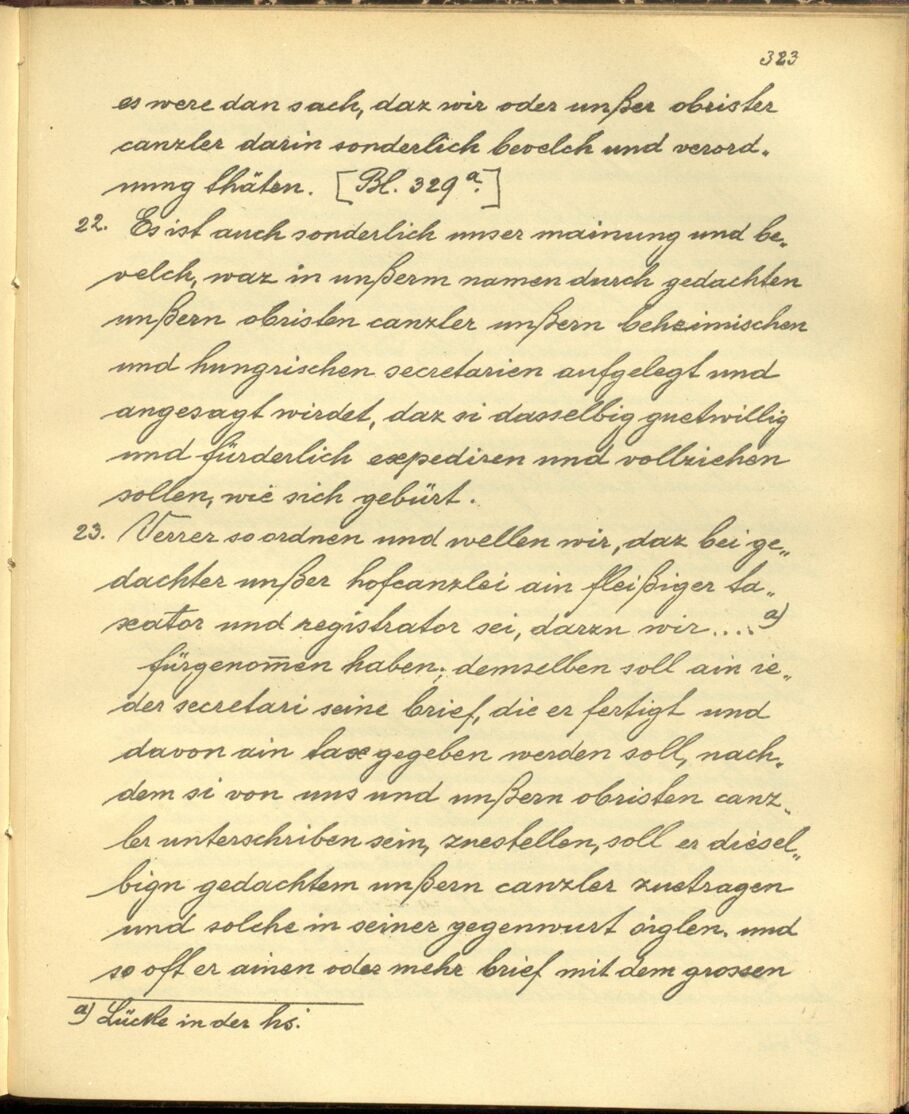 323
es were dan sach, daz wir oder unßer obrister
canzler darin sonderlich bevelch und verord-
nung thäten. [Bl. 329ᵃ.]
22. Es ist auch sonderlich unser mainung und be-
velch, waz in unßerm namen durch gedachten
unßern obristen canzler unßern beheimischen
und hungrischen secretarien aufgelegt und
angesagt wirdet, daz si dasselbig guetwillig
und fürderlich expediren und vollziehen
sollen, wie sich gebürt.
23. Verrer so ordnen und wellen wir, daz bei ge„
dachter unßer hofcanzlei ain fleißiger ta„
xator und registrator sei, darzu wir....ᵃ⁾
fürgenom̄en haben; demselben soll ain ie„
der secretari seine brief, die er fertigt und
davon ain tax gegeben werden soll, nach„
dem si von uns und unßern obristen canz„
ler unterschriben sein, zuestellen, soll er diesel„
bign gedachtem unßern canzler zuetragen
und solche in seiner gegenwurt siglen. und
so oft er ainen oder mehr brief mit dem grossen
ᵃ⁾ Lücke in der hs.